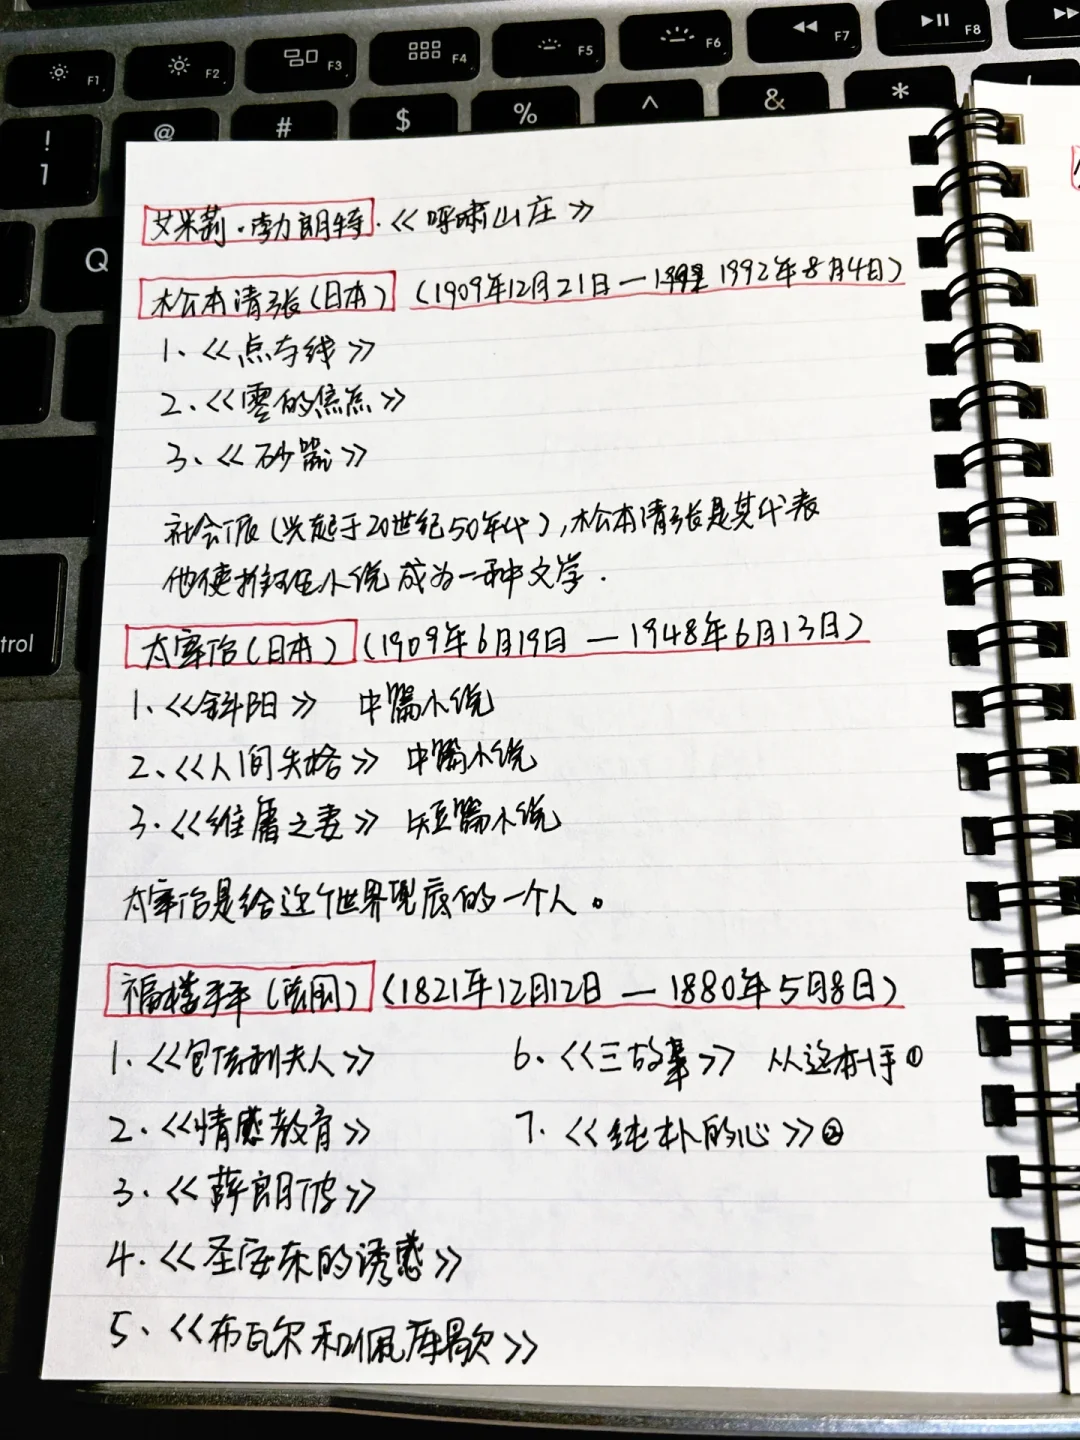 F1 F2 F3 F4 F5 F6 F7 F8
! @ # $ % ^ & * (
1
Q
rol
艾米莉·勃朗特.《呼啸山庄》
松本清张(日本) (1909年12月21日一 1992年8月4日)
1、《点与线》
2、《零的焦点》
3、《砂器》
社会派(兴起于20世纪50年代),松本清张是其代表
他使推理小说成为一种文学.
太宰治(日本) (1909年6月19日 — 1948年6月13日)
1、《斜阳》 中篇小说
2、《人间失格》 中篇小说
3.《维庸之妻》 短篇小说
太宰治是给这个世界兜底的一个人。
福楼拜(法国) (1821年12月12日 — 1880年5月8日)
1.《包法利夫人》 6.《三故事》 从这本1手①
2.《情感教育》 7.《纯朴的心》②
3.《萨朗波》
4.《圣安东的诱惑》
5、《布瓦尔和佩库歇》